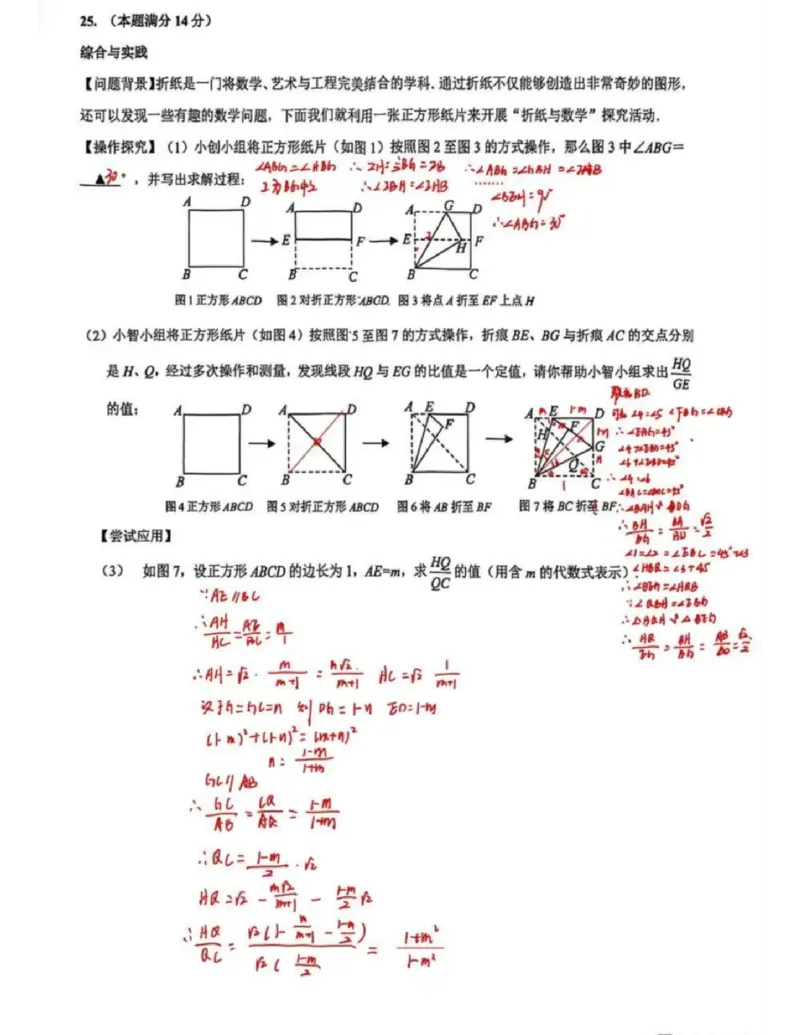 25. （本题满分 14 分）
综合与实践
【问题背景】折纸是一门将数学、艺术与工程完美结合的学科. 通过折纸不仅能够创造出非常奇妙的图形,
还可以发现一些有趣的数学问题，下面我们就利用一张正方形纸片来开展“折纸与数学”探究活动.
【操作探究】（1）小创小组将正方形纸片（如图 1）按照图 2 至图 3 的方式操作，那么图 3 中∠ABG=
▲30°，并写出求解过程;
∠ABG=∠HBG ∴IH=½BG=IB ∴∠ABG=∠GBH=∠IHB
I为BG中点 ∴∠IBH=∠IHB ……
∠BEH=90°
∴∠ABG=30°
A D A D A G D
E F E I H F
B C B C B C
图 1 正方形 ABCD 图 2 对折正方形 ABCD. 图 3 将点 A 折至 EF 上点 H
（2）小智小组将正方形纸片（如图 4）按照图 5 至图 7 的方式操作，折痕 BE、BG 与折痕 AC 的交点分别
是 H、Q，经过多次操作和测量，发现线段 HQ 与 EG 的比值是一个定值，请你帮助小智小组求出 HQ/GE
的值;
连接BD
可知 ∠4=∠5 ∠FBG=∠CBG
∴∠EBG=45°
∴∠4=∠6
∠BAC=∠BDC=45°
∴BH/BG=BA/BD=√2/2
∠HBQ=∠3+45
∴∠BEG=∠HQB
∵∠QBH=∠EBG
∴△BQH∽△BEG
∴HQ/EG=BH/BG=AB/BD=√2/2
A D A D A E D A m E 1-m D
F H F G n
Q
B C B C B C B 1 C
图 4 正方形 ABCD 图 5 对折正方形 ABCD 图 6 将 AB 折至 BF 图 7 将 BC 折至 BF
【尝试应用】
（3） 如图 7，设正方形 ABCD 的边长为 1，AE=m，求 HQ/QC 的值（用含 m 的代数式表示）.
∵AE∥BC
∴AH/HC=AE/BC=m/1
∴AH=√2·m/(m+1)=m√2/(m+1) HC=√2 1/(m+1)
设FG=GC=n 则DG=1-n ED=1-m
(1-m)²+(1-n)²=(m+n)²
n=(1-m)/(1+m)
GC∥AB
∴GC/AB=CQ/AQ=(1-m)/(1+m)
∴QC=(1-m)/2·√2
HQ=√2-m√2/(m+1)-(1-m)/2 √2
∴HQ/QC=√2(1-m/(m+1)-(1-m)/2)/√2((1-m)/2)=(1+m²)/(1-m²)